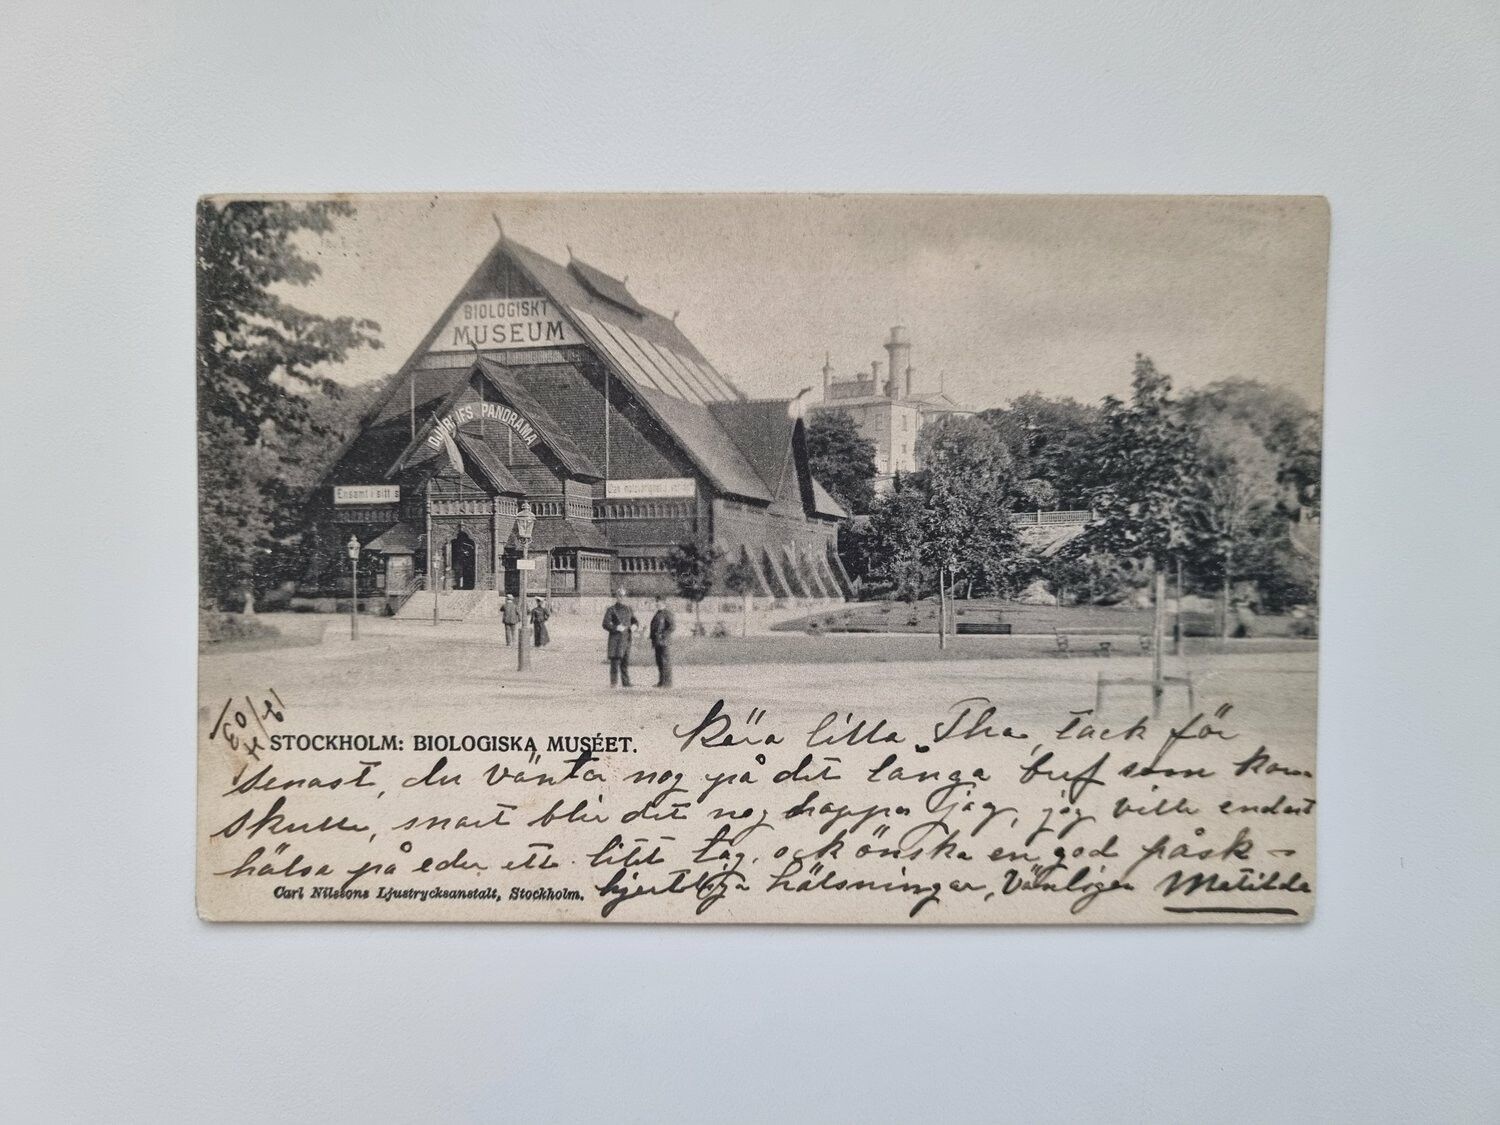 BIOLOGISKT
MUSEUM
PANORAMA
Ensamt i sitt s
12/4 03
STOCKHOLM: BIOLOGISKA MUSÉET.
Kära lilla Thea, tack för
senast, du väntar nog på det långa bref som kom
skulle, snart blir det nog hoppas jag, jag ville endast
hälsa på eder ett litet tag, och önska en god påsk -
hjertliga hälsningar, Vänligen Matilda
Carl Nilssons Ljustrycksanstalt, Stockholm.